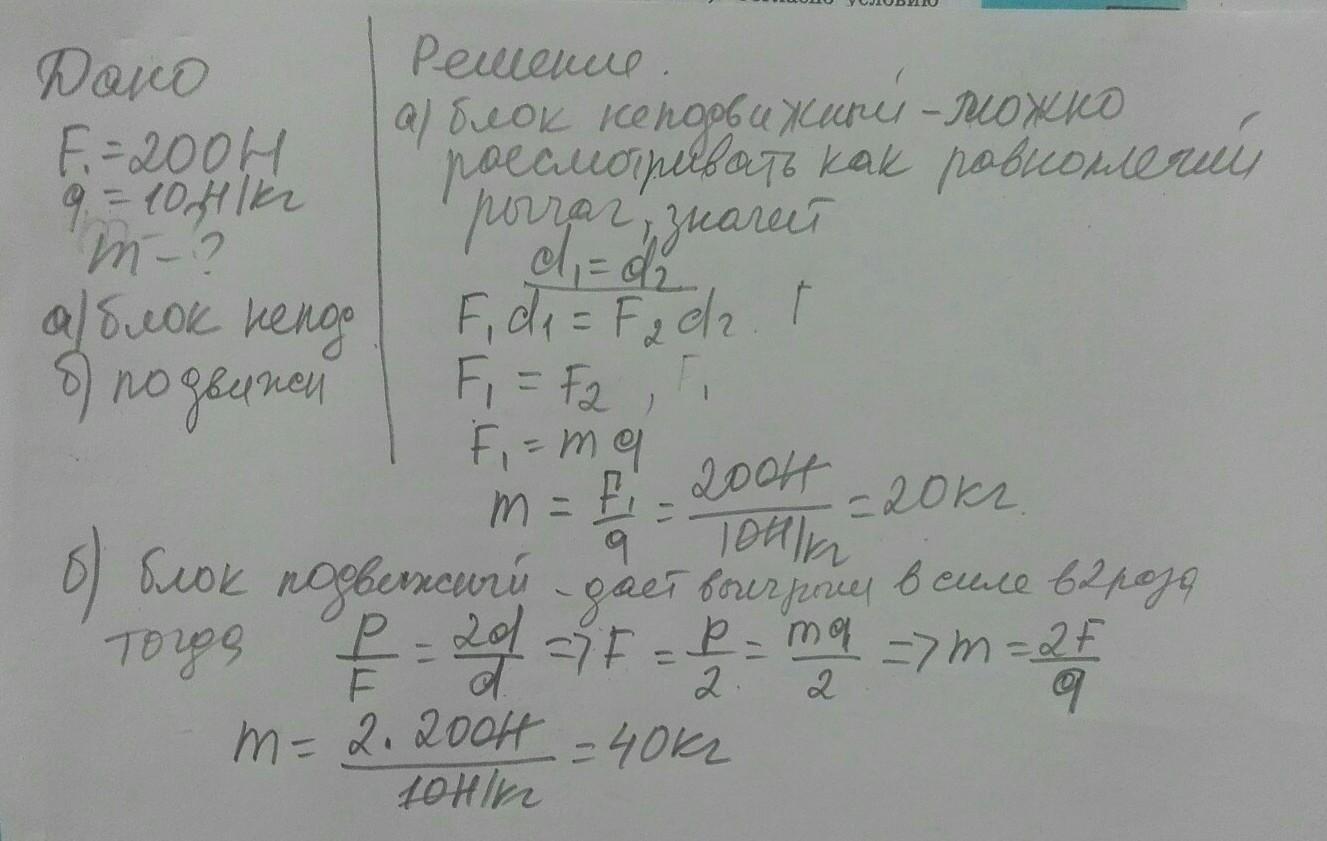 согласно условию
Дано
F₁ = 200Н
g = 10 Н/кг
m - ?
а) блок непод
б) подвижн
Решение.
а) блок неподвижный - можно
рассматривать как равноплечий
рычаг, значит
d₁ = d₂
F₁ d₁ = F₂ d₂. Г
F₁ = F₂ , F₁
F₁ = m g
m = F₁/g = 200Н/10Н/кг = 20кг.
б) блок подвижный - дает выигрыш в силе в 2 раза
тогда P/F = 2d/d => F = P/2 = mg/2 => m = 2F/g
m = 2·200Н/10Н/кг = 40кг